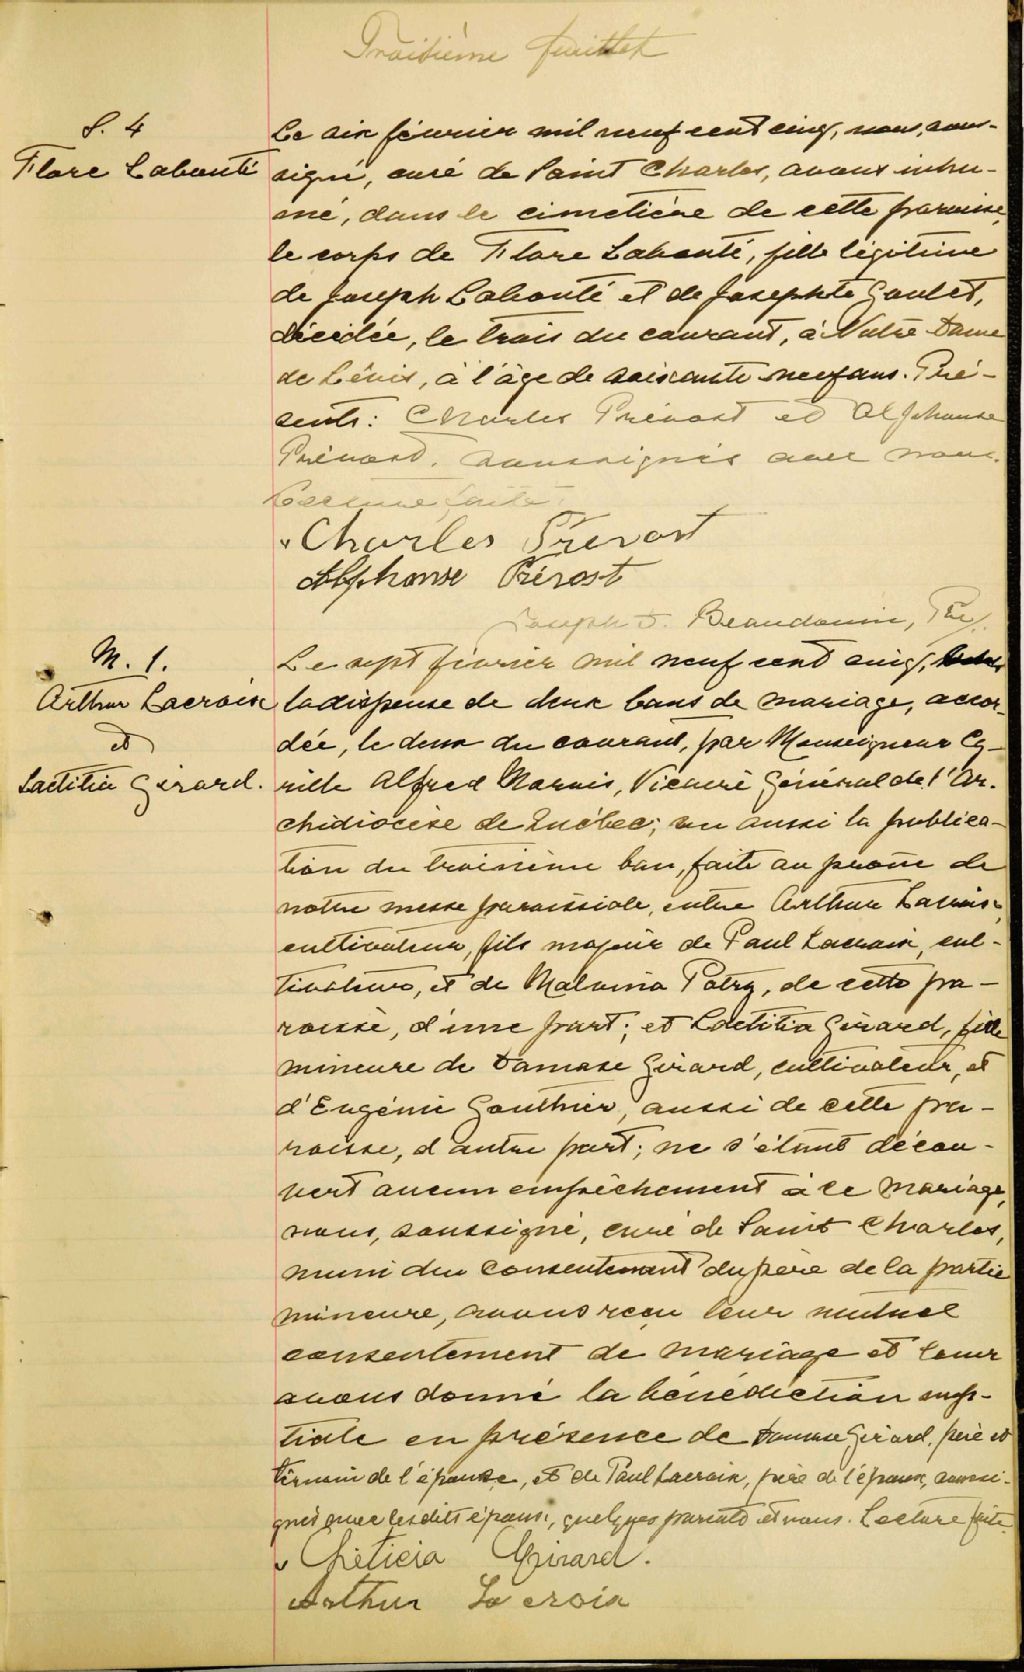 Troisième feuillet
S. 4
Flore Labonté
Le six février mil neuf cent cinq, nous, sous-
signé, curé de Saint Charles, avons inhu-
mé, dans le cimetière de cette paroisse,
le corps de Flore Labonté, fille légitime
de Joseph Labonté et de Josephte Goulet,
décédée, le trois du courant, à Notre Dame
de Lévis, à l'âge de soixante neuf ans. Pré-
sents: Charles Prévost et Alphonse
Prévost, soussignés avec nous.
Lecture faite.
Charles Prévost
Alphonse Prévost
Joseph D. Beaudoin, Ptre
M. 1.
Arthur Lacroix
et
Laetitia Girard.
Le sept février mil neuf cent cinq,
la dispense de deux bans de mariage, accor-
dée, le deux du courant, par Monseigneur Cy-
rille Alfred Marois, Vicaire Général de l'Ar-
chidiocèse de Québec; vu aussi la publica-
tion du troisième ban, faite au prône de
notre messe paroissiale, entre Arthur Lacroix,
cultivateur, fils majeur de Paul Lacroix, cul-
tivateur, et de Malvina Patry, de cette pa-
roisse, d'une part; et Laetitia Girard, fille
mineure de Damase Girard, cultivateur, et
d'Eugénie Gauthier, aussi de cette pa-
roisse, d'autre part; ne s'étant décou-
vert aucun empêchement à ce mariage,
nous, soussigné, curé de Saint Charles,
muni du consentement du père de la partie
mineure, avons reçu leur mutuel
consentement de mariage et leur
avons donné la bénédiction nup-
tiale en présence de Damase Girard, père et
témoin de l'épouse, et de Paul Lacroix, père de l'époux, soussi-
gnés avec les dits époux, quelques parents et nous. Lecture faite.
Léticia Girard.
Arthur Lacroix